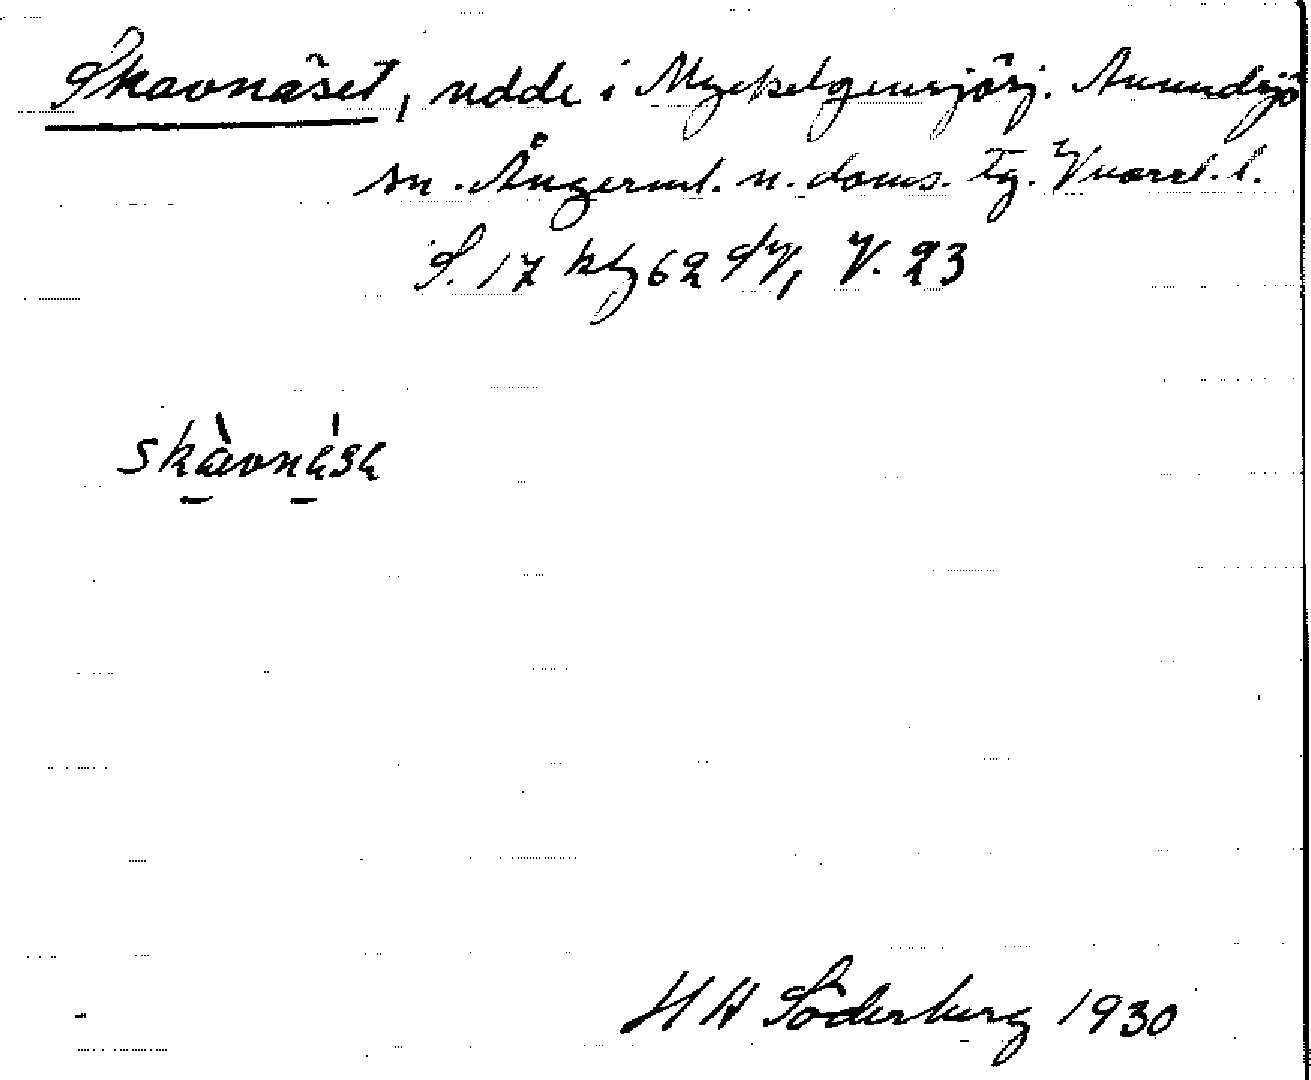 Skavnäset, udde i Myckelgensjösj. Anundsjö
sn. Ångerml. n. doms. tg. Vnorrl. l.
S. 17 kbl 62 SV, V. 23
skàvnésę
H A Söderberg 1930